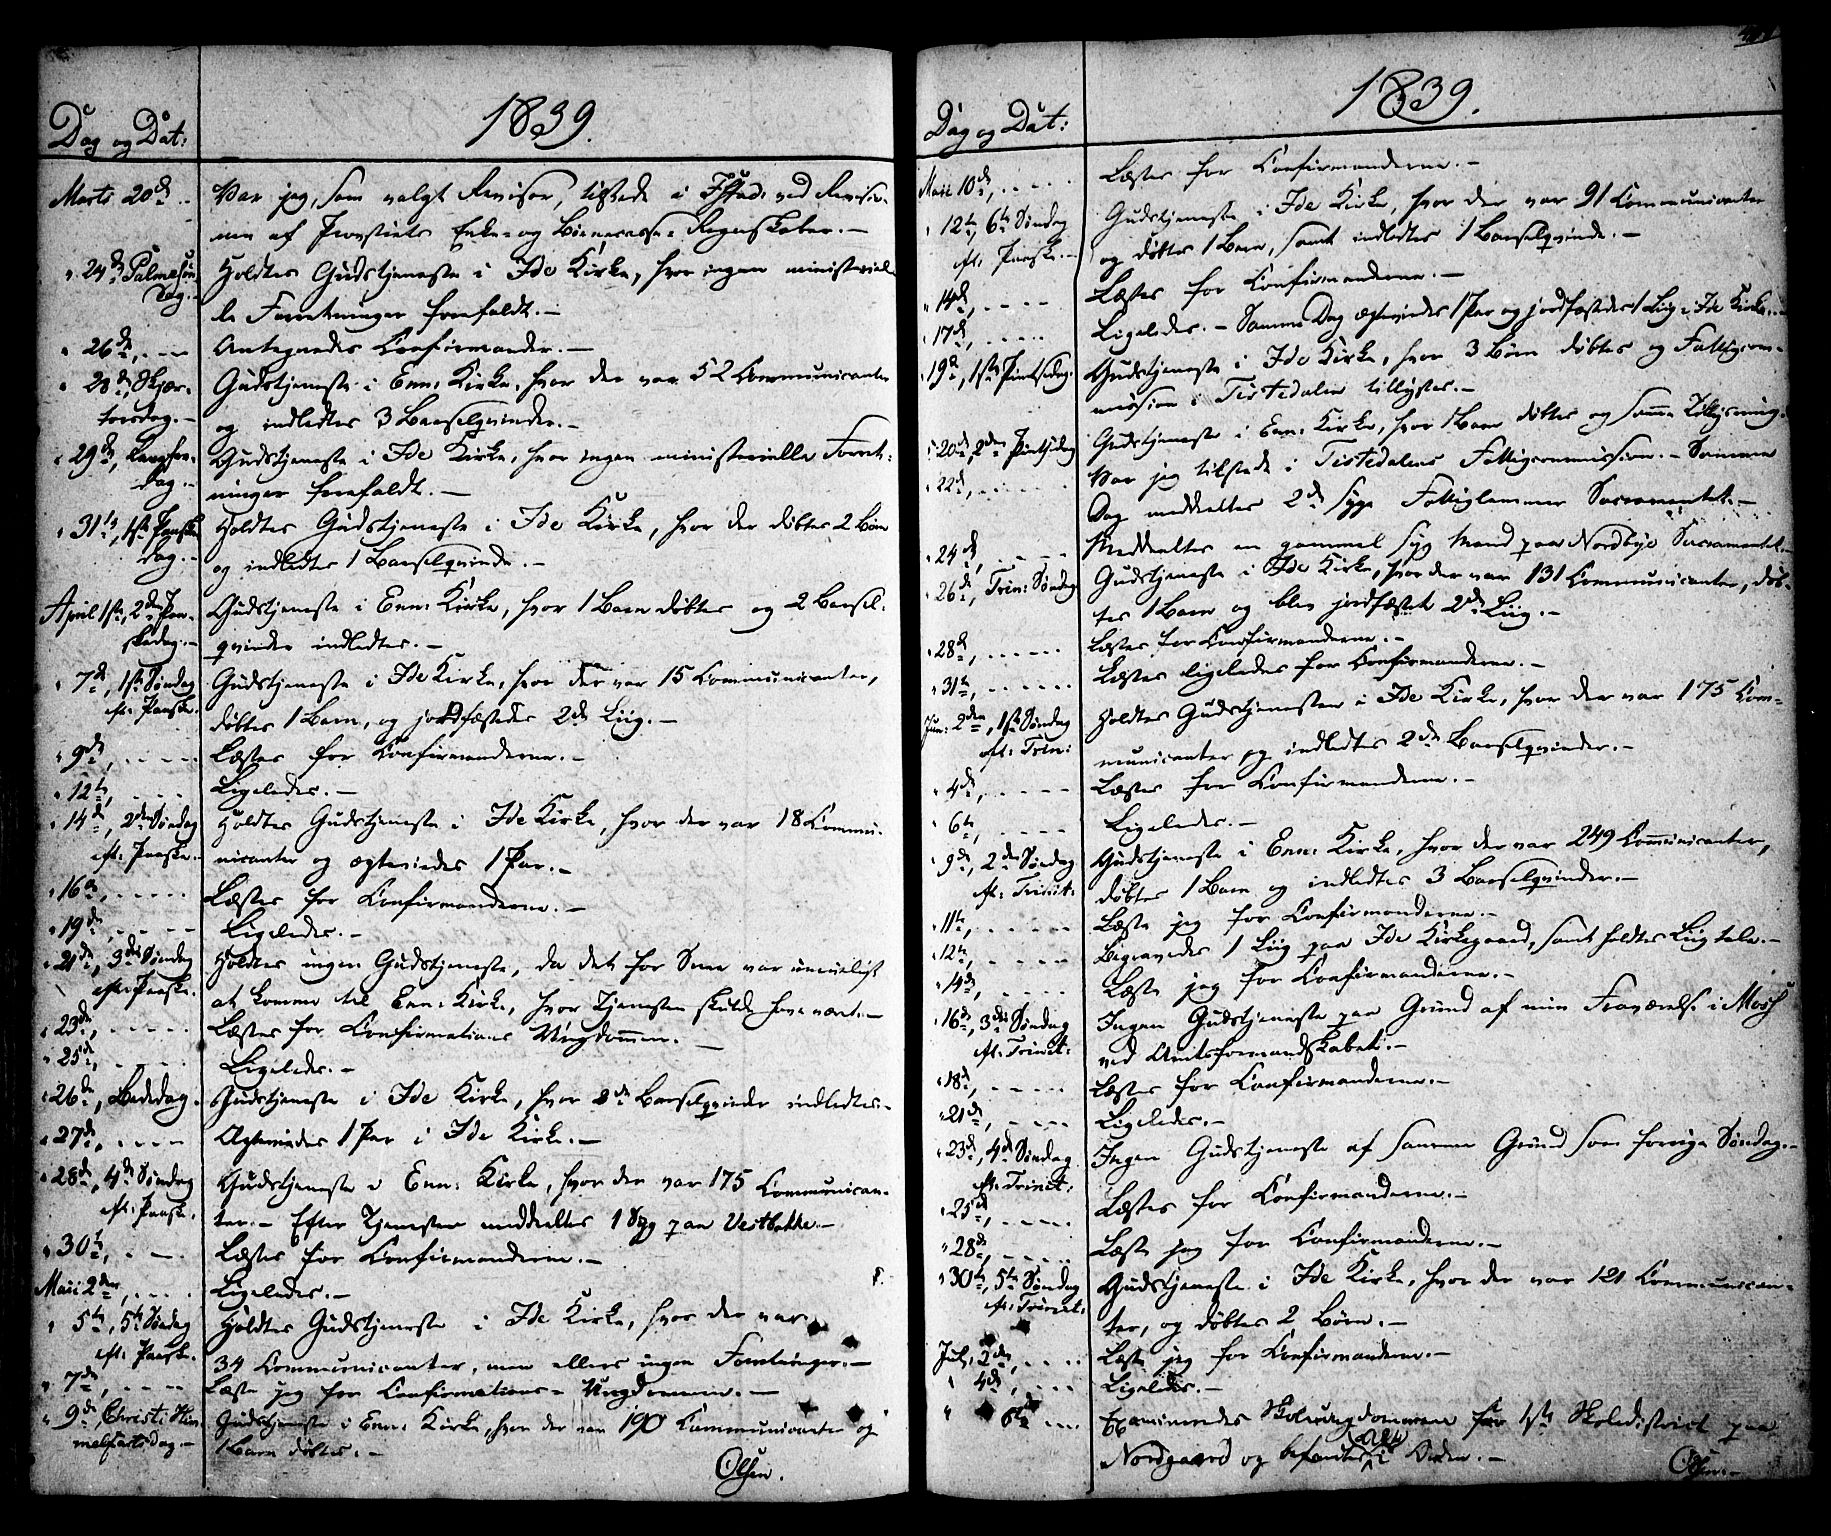 Dag og Dat:
1839.
Marts 20de
Var jeg, som valgt Revisor, tilstede i Fstad: ved Revisio-
nen af Provstiets Enke- og Børnecasse-Regnskaber.-
" 24de Palmesøn-
dag.-
Holdtes Gudstjeneste i Ide Kirke, hvor ingen ministeriel-
le Forretninger forefaldt.-
" 26de, - - -
Antegnedes Confirmander.-
" 28de, Skjær-
torsdag.-
Gudstjeneste i Enn: Kirke, hvor der var 52 Communicanter
og indledtes 3 Barselqvinder.-
" 29de, Langfre-
dag.-
Gudstjeneste i Ide Kirke, hvor ingen ministerielle Forret-
ninger forefaldt.-
" 31te, 1ste Paaske
dag.-
Holdtes Gudstjeneste i Ide Kirke, hvor der døbtes 2 Børn
og indledtes 1 Barselqvinde.-
April 1ste, 2den Paa-
skedag.-
Gudstjeneste i Enn: Kirke, hvor 1 Barn døbtes og 2 Barsel-
qvinder indledtes.-
" 7de, 1ste Søndag
eft: Paaske.
Gudstjeneste i Ide Kirke, hvor der var 15 Communicanter,
døbtes 1 Barn, og jordfæstedes 2de Liig.-
" 9de, - - - -
Læstes for Confirmanderne.-
" 12te, - - -
Ligeledes.-
" 14de, 2den Søndag
eft: Paaske.-
Holdtes Gudstjeneste i Ide Kirke, hvor der var 18 Commu-
nicanter og ægteviedes 1 Par.-
" 16de, - - - -
Læstes for Confirmanderne.-
" 19de, - - - -
Ligeledes.-
" 21de, 3die Søndag
eft: Paaske.
Holdtes ingen Gudstjeneste, da det for Snee var umueligt
at komme til Enn: Kirke, hvor Tjenesten skulde have været.-
" 23de, - - - -
Læstes for Confirmations Ungdommen.-
" 25de, - - - -
Ligeledes.-
" 26de, Bededag.
Gudstjeneste i Ide Kirke, hvor 2de Barselqvinder indledtes.-
" 27de, - - - -
Ægteviedes 1 Par i Ide Kirke.-
" 28de, 4de Søndag
eft: Paaske.
Gudstjeneste i Enn: Kirke, hvor der var 175 Communican-
ter.- Efter Tjenesten meddeeltes 1 Syg paa Vestbakke.-
" 30te, - - -
Læstes for Confirmanderne.-
Maii 2den, - - -
Ligeledes.-
" 5te, 5te Søndag
eft: Paaske.
Holdtes Gudstjeneste i Ide Kirke, hvor der var
34 Communicanter, men ellers ingen Forretninger.-
" 7de, - - - -
Læste jeg for Confirmations-Ungdommen.-
" 9de Christi Him-
melfartsdag.-
Gudstjeneste i Enn: Kirke, hvor der var 190 Communicanter og
1 Barn døbtes.-
Olsen.
Dag og Dat:
1839.
Maii 10de, - - - -
Læstes for Confirmanderne.-
" 12te, 6te Søndag
eft: Paaske.-
Gudstjeneste i Ide Kirke, hvor der var 91 Communicanter
og døbtes 1 Barn, samt indledtes 1 Barselqvinde.-
" 14de, - - -
Læstes for Confirmanderne.-
" 17de, - - - -
Ligeledes.- Samme Dag ægteviedes 1 Par og jordfæstedes 1 Liig i Ide Kirke.-
" 19de, 1ste Pintsedag.
Gudstjeneste i Ide Kirke, hvor 3 Børn døbtes og Fattigcom-
mission i Tistedalen tillystes.-
" 20de, 2den Pintsedag
Gudstjeneste i Enn: Kirke, hvor 1 Barn døbtes og samme Tillysning.
" 22de, - - - -
Var jeg tilstede i Tistedalens Fattigcommission.- Samme
Dag meddeeltes 2de syge Fattiglemmer Sacramentet.-
" 24de, - - - -
Meddeeltes en gammel syg Mand paa Nordbye Sacramentet.-
" 26de, Trin: Søndag
Gudstjeneste i Ide Kirke, hvor der var 131 Communicanter, døb-
tes 1 Barn og blev jordfæstet 2de Liig.-
" 28de, - - - -
Læstes for Confirmanderne.-
" 31te, - - - -
Læstes ligeledes for Confirmanderne.-
Jun: 2den, 1ste Søndag
eft: Trin:
Holdtes Gudstjenesten i Ide Kirke, hvor der var 175 Com-
municanter og indledtes 2de Barselqvinder.-
" 4de, - - - -
Læstes for Confirmanderne.-
" 6te, - - - -
Ligeledes.-
" 9de, 2den Søndag
eft: Trinit:
Gudstjeneste i Enn: Kirke, hvor der var 249 Communicanter,
døbtes 1 Barn og indledtes 3 Barselqvinder.-
" 11te, - - - -
Læste jeg for Confirmanderne.-
" 12te, - - - -
Begravedes 1 Liig paa Ide Kirkegaard, samt holdtes Liigtale.-
" 14de, - - - -
Læste jeg for Confirmanderne.-
" 16de, 3die Søndag
eft: Trinit:
Ingen Gudstjeneste paa Grund af min Fraværelse i Moss
ved Amtsformandskabet.-
" 18de, - - - -
Læstes for Confirmanderne.-
" 21de, - - - -
Ligeledes.-
" 23de, 4de Søndag
eft: Trinit:
Ingen Gudstjeneste af samme Grund som forrige Søndag.-
" 25de, - - - -
Læstes for Confirmanderne.-
" 28de, - - - -
Læste jeg for Confirmanderne.-
" 30te, 5te Søndag
eft: Trinit:
Gudstjeneste i Ide Kirke, hvor der var 121 Communican-
ter, og døbtes 2 Børn.-
Juli 2den, - - - -
Læste jeg for Confirmanderne.-
" 4de, - - - -
Ligeledes.-
" 6te - - -
Examineredes Skoleungdommen for 1ste Skoledistrict paa
Nordgaard og befandtes alt i Orden.-
Olsen.-